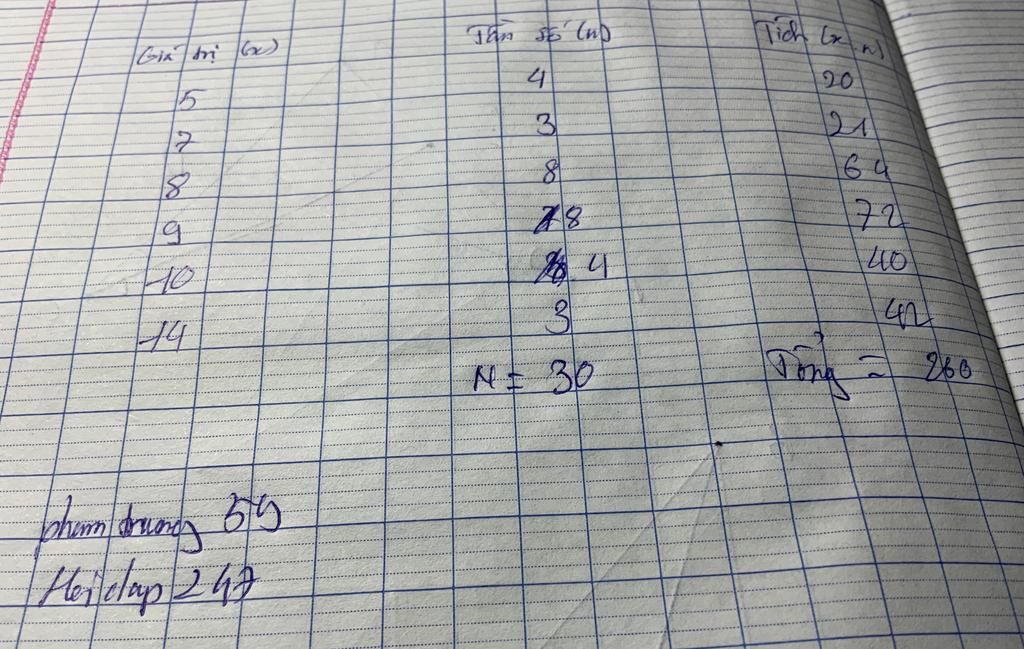 Giá trị (x) Tần số (n) Tích (x.n)
5 4 20
7 3 21
8 8 64
9 8 72
10 4 40
14 3 42
N = 30 Tổng = 260
phamtrung 59
Hoidap 247